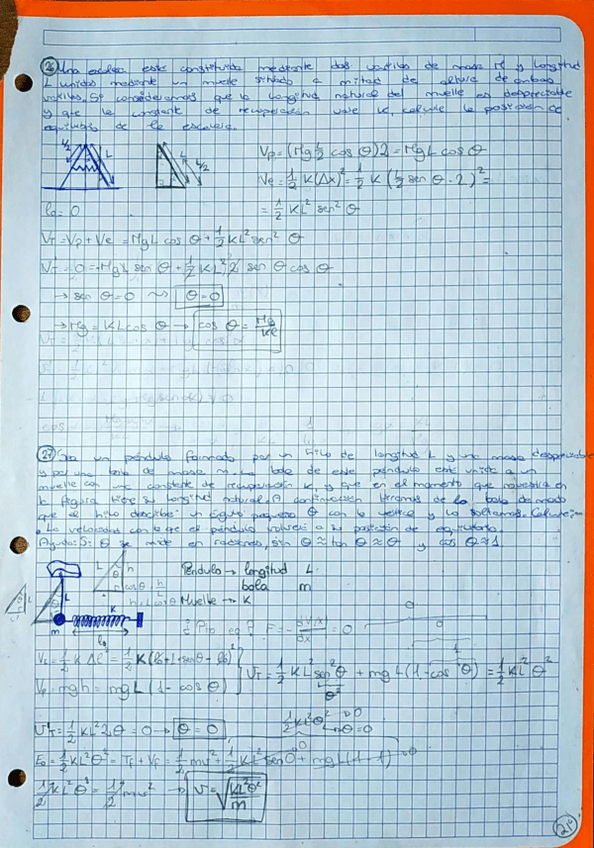 26 Una escalera está constituida mediante dos varillas de masa M y longitud
L unidas mediante un muelle situado a mitad de altura de ambas
varillas. Si consideramos que la longitud natural del muelle es despreciable
y que la constante de recuperación vale K, calcule la posición de
equilibrio de la escalera.
L/2 L L L/2
Vp = (Mg L/2 cos θ)2 = MgL cos θ
Ve = 1/2 K(Δx)² = 1/2 K (L/2 sen θ · 2)² =
l₀ = 0
= 1/2 KL² sen² θ
VT = Vp + Ve = MgL cos θ + 1/2 KL² sen² θ
V'T = 0 = -MgL sen θ + 1/2 KL² 2 sen θ cos θ
→ sen θ = 0 θ = 0
→ Mg = KL cos θ → cos θ = Mg/Kl
27 Sea un péndulo formado por un hilo de longitud L y una masa despreciable
y por una bola de masa m. La bola de este péndulo está unida a un
muelle con una constante de recuperación K, y que en el momento que muestra en
la figura tiene su longitud natural. A continuación tiramos de la bola de modo
que el hilo describe un ángulo pequeño θ con la vertical y la soltamos. Calcule:
· La velocidad con la que el péndulo volverá a su posición de equilibrio.
Ayuda: Si θ se mide en radianes, sin θ ≈ tan θ ≈ θ y cos θ ≈ 1
Péndulo → longitud L
bola m
Muelle → K
L θ h
K
m l₀
¿ Pto eq ? F = - dV(x)/dx = 0
Ve = 1/2 K Δl² = 1/2 K (l₀ + L sen θ - l₀)²
Vp = mgh = mgL (1 - cos θ)
VT = 1/2 KL² sen² θ + mgL (1 - cos θ) = 1/2 KL² θ²
θ²
V'T = 1/2 KL² 2θ = 0 → θ = 0
E₀ = 1/2 KL² θ² = Tf + Vf = 1/2 mv² + 1/2 KL² sen 0 + mgL (1 - 1)
1/2 KL² θ² = 1/2 mv² → v = √(KL²θ²/m)
21